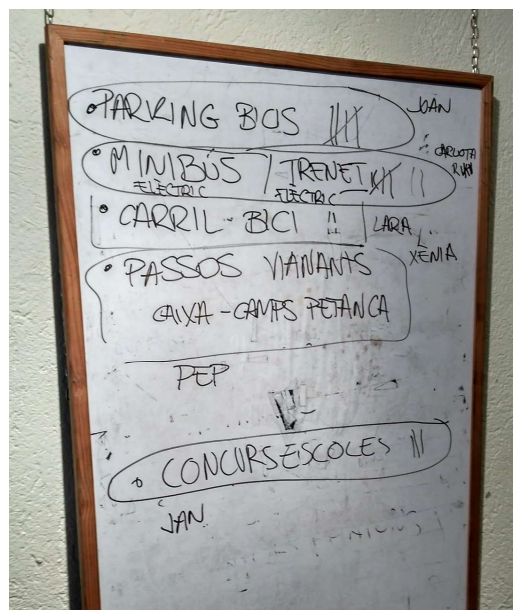 • PARKING BICIS
JOAN
• MINIBÚS / TRENET
ELÈCTRIC ELÈCTRIC
CARLOTA
• CARRIL-BICI II LARA
XÈNIA
• PASSOS VIANANTS
CAIXA - CAMPS PETANCA
PEP
• CONCURS ESCOLES III
JAN